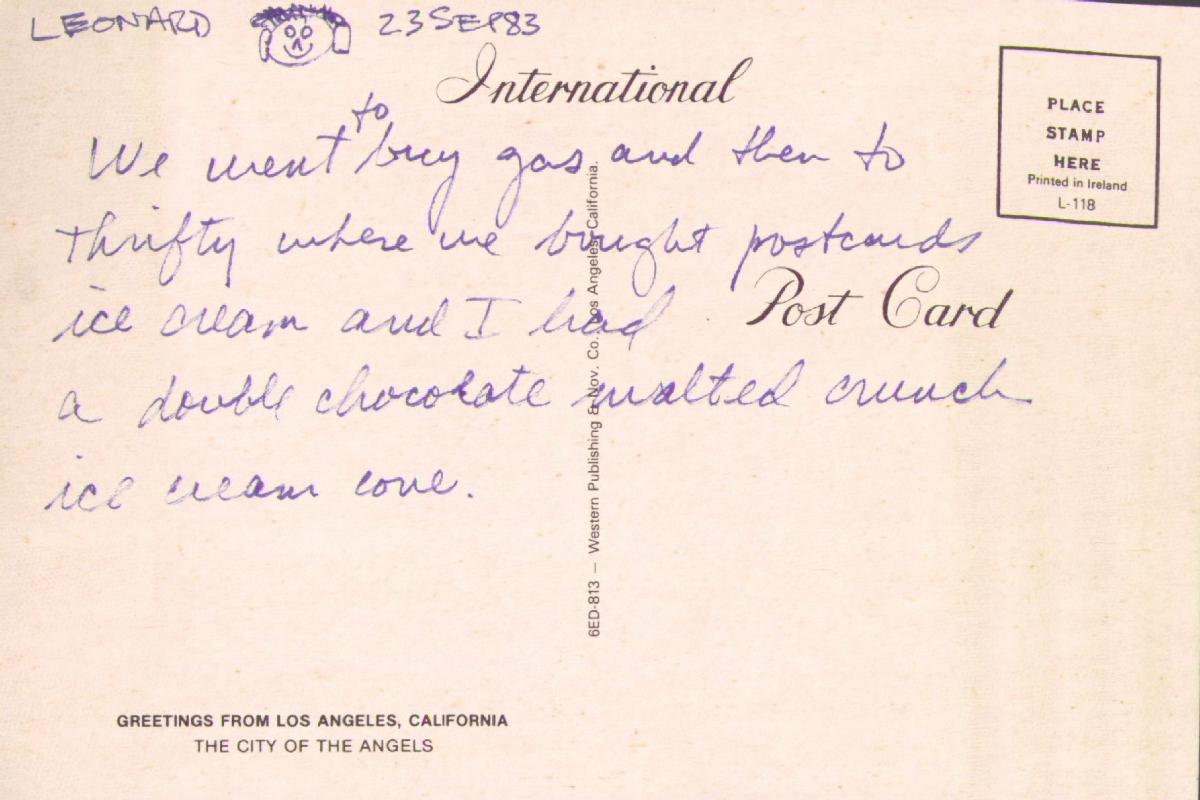 LEONARD 23 SEP 83
International
PLACE
STAMP
HERE
Printed in Ireland
L-118
We went to buy gas and then to
Thrifty where we bought postcards
ice cream and I had
Post Card
a double chocolate malted crunch
ice cream cone.
6ED-813 — Western Publishing & Nov. Co., Los Angeles, California.
GREETINGS FROM LOS ANGELES, CALIFORNIA
THE CITY OF THE ANGELS